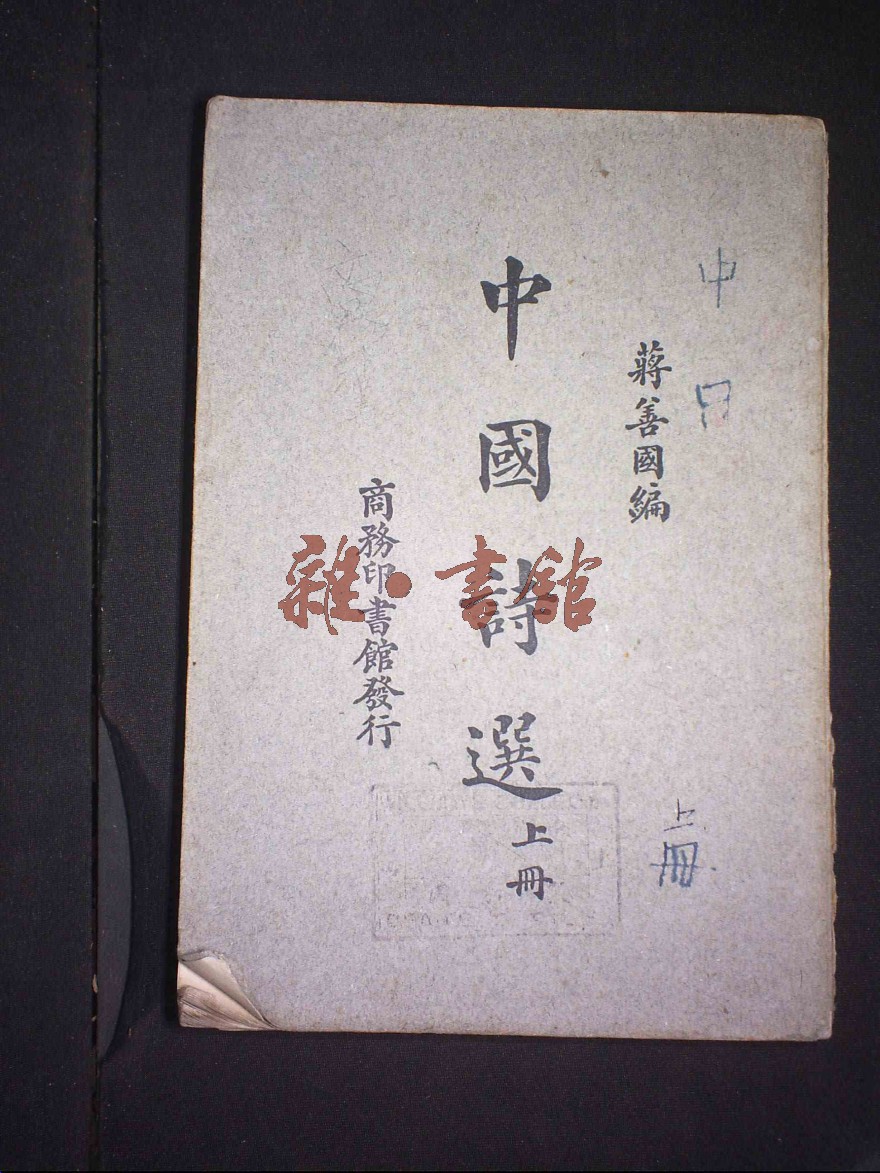 中
上冊
蔣善國編
中國詩選
上冊
商務印書館發行
雜·書館